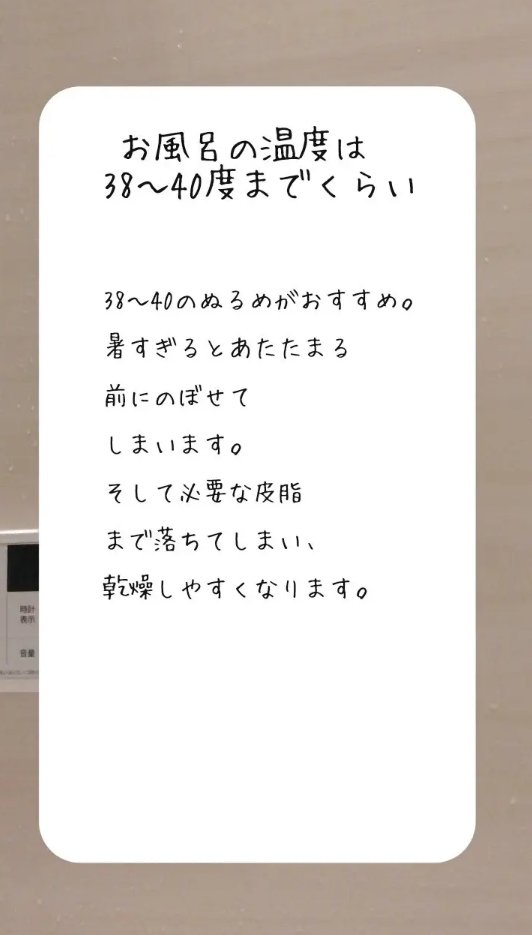 お風呂の温度は
38～40度までくらい
38～40のぬるめがおすすめ。
暑すぎるとあたたまる
前にのぼせて
しまいます。
そして必要な皮脂
まで落ちてしまい、
乾燥しやすくなります。
時計
表示
音量